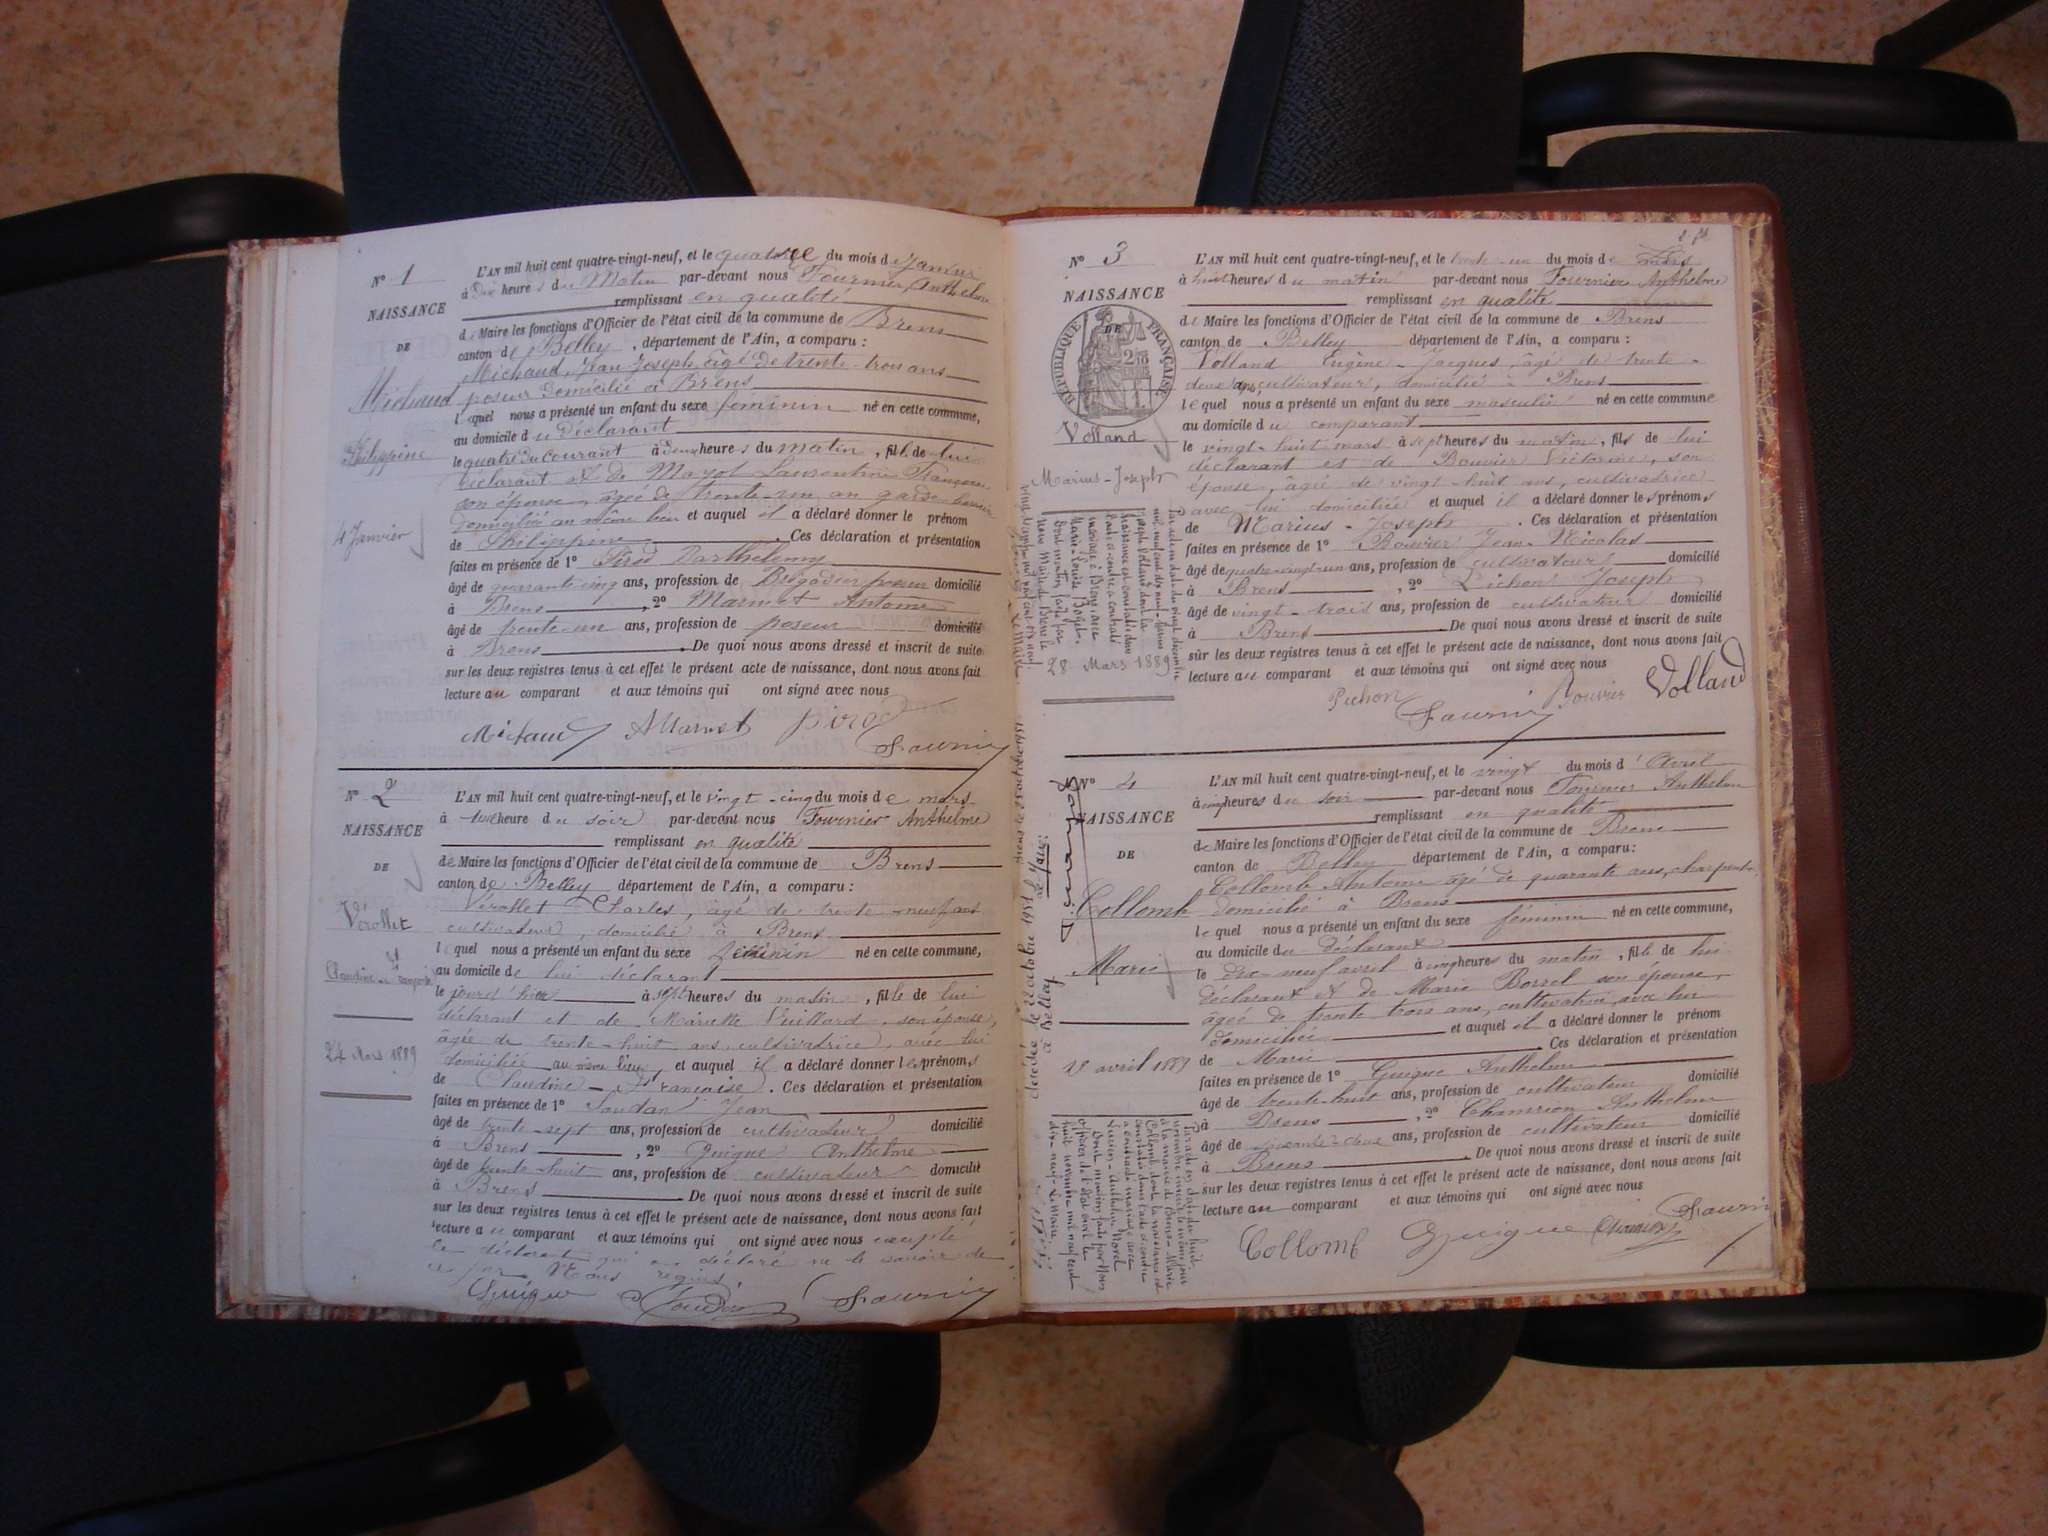 N° 1
NAISSANCE
DE
Michaud
Philippine
4 Janvier
L'AN mil huit cent quatre-vingt-neuf, et le quatre du mois de Janvier
à Dix heures du Matin par-devant nous Fournier Anthelme
remplissant en qualité
de Maire les fonctions d'Officier de l'état civil de la commune de Brens
canton de Belley, département de l'Ain, a comparu :
Michaud Jean Joseph âgé de trente-trois ans
poseur domicilié à Brens
lequel nous a présenté un enfant du sexe féminin né en cette commune,
au domicile du Déclarant
le quatre du courant à deux heures du matin, fille de lui
déclarant et de Mayot Laurentine Françoise
son épouse, âgée de trente-un an garde-barrière
domiciliée au même lieu et auquel il a déclaré donner le prénom
de Philippine. Ces déclaration et présentation
faites en présence de 1° Barthélemy
âgé de quarante cinq ans, profession de Brigadier poseur domicilié
à Brens, 2° Marmet Antoine
âgé de trente-un ans, profession de poseur domicilié
à Brens. De quoi nous avons dressé et inscrit de suite
sur les deux registres tenus à cet effet le présent acte de naissance, dont nous avons fait
lecture au comparant et aux témoins qui ont signé avec nous
Michaud AMarmet
Fournier
N° 2
NAISSANCE
DE
Vérollet
Claudine-Françoise
24 Mars 1889
L'AN mil huit cent quatre-vingt-neuf, et le vingt-cinq du mois de mars
à une heure du soir par-devant nous Fournier Anthelme
remplissant en qualité
de Maire les fonctions d'Officier de l'état civil de la commune de Brens
canton de Belley département de l'Ain, a comparu :
Vérollet Charles, âgé de trente-neuf ans
cultivateur, domicilié à Brens
lequel nous a présenté un enfant du sexe féminin né en cette commune,
au domicile de lui déclarant
le jour d'hier à sept heures du matin, fille de lui
déclarant et de Mariette Vuillard, son épouse,
âgée de trente-huit ans, cultivatrice, avec lui
domiciliée au même lieu, et auquel il a déclaré donner les prénoms
de Claudine-Françoise. Ces déclaration et présentation
faites en présence de 1° Soudan Jean
âgé de trente-sept ans, profession de cultivateur domicilié
à Brens, 2° Guigue Anthelme
âgé de trente-huit ans, profession de cultivateur domicilié
à Brens. De quoi nous avons dressé et inscrit de suite
sur les deux registres tenus à cet effet le présent acte de naissance, dont nous avons fait
lecture au comparant et aux témoins qui ont signé avec nous excepté
le déclarant qui a déclaré ne le savoir de
ce par Nous requis
Guigue Soudan Fournier
N° 3
NAISSANCE
DE
RÉPUBLIQUE FRANÇAISE
Volland
Marius-Joseph
28 Mars 1889
L'AN mil huit cent quatre-vingt-neuf, et le trente-un du mois de mars
à huit heures du matin par-devant nous Fournier Anthelme
remplissant en qualité
de Maire les fonctions d'Officier de l'état civil de la commune de Brens
canton de Belley département de l'Ain, a comparu :
Volland Eugène-Jacques, âgé de trente-
deux ans, cultivateur, domicilié à Brens
lequel nous a présenté un enfant du sexe masculin né en cette commune
au domicile du comparant
le vingt-huit mars à sept heures du matin, fils de lui
déclarant et de Bouvier Victorine, son
épouse, âgée de vingt-huit ans, cultivatrice
avec lui domiciliée et auquel il a déclaré donner les prénoms
de Marius-Joseph. Ces déclaration et présentation
faites en présence de 1° Bouvier Jean-Nicolas
âgé de quatre-vingt-un ans, profession de cultivateur domicilié
à Brens, 2° Pichon Joseph
âgé de vingt-trois ans, profession de cultivateur domicilié
à Brens. De quoi nous avons dressé et inscrit de suite
sur les deux registres tenus à cet effet le présent acte de naissance, dont nous avons fait
lecture au comparant et aux témoins qui ont signé avec nous
Pichon Fournier Bouvier Volland
N° 4
NAISSANCE
DE
Collomb
Marie
19 avril 1889
L'AN mil huit cent quatre-vingt-neuf, et le vingt du mois d'Avril
à cinq heures du soir par-devant nous Fournier Anthelme
remplissant en qualité
de Maire les fonctions d'Officier de l'état civil de la commune de Brens
canton de Belley département de l'Ain, a comparu :
Collomb Antoine âgé de quarante ans, charpentier
domicilié à Brens
lequel nous a présenté un enfant du sexe féminin né en cette commune,
au domicile du déclarant
le dix-neuf avril à cinq heures du matin, fille de lui
déclarant et de Marie Borrel son épouse,
âgée de trente trois ans, cultivatrice avec lui
domiciliée et auquel il a déclaré donner le prénom
de Marie. Ces déclaration et présentation
faites en présence de 1° Guigue Anthelme
âgé de trente-huit ans, profession de cultivateur domicilié
à Brens, 2° Chamrion Anthelme
âgé de soixante-deux ans, profession de cultivateur domicilié
à Brens. De quoi nous avons dressé et inscrit de suite
sur les deux registres tenus à cet effet le présent acte de naissance, dont nous avons fait
lecture au comparant et aux témoins qui ont signé avec nous
Collomb Guigue Chamrion Fournier